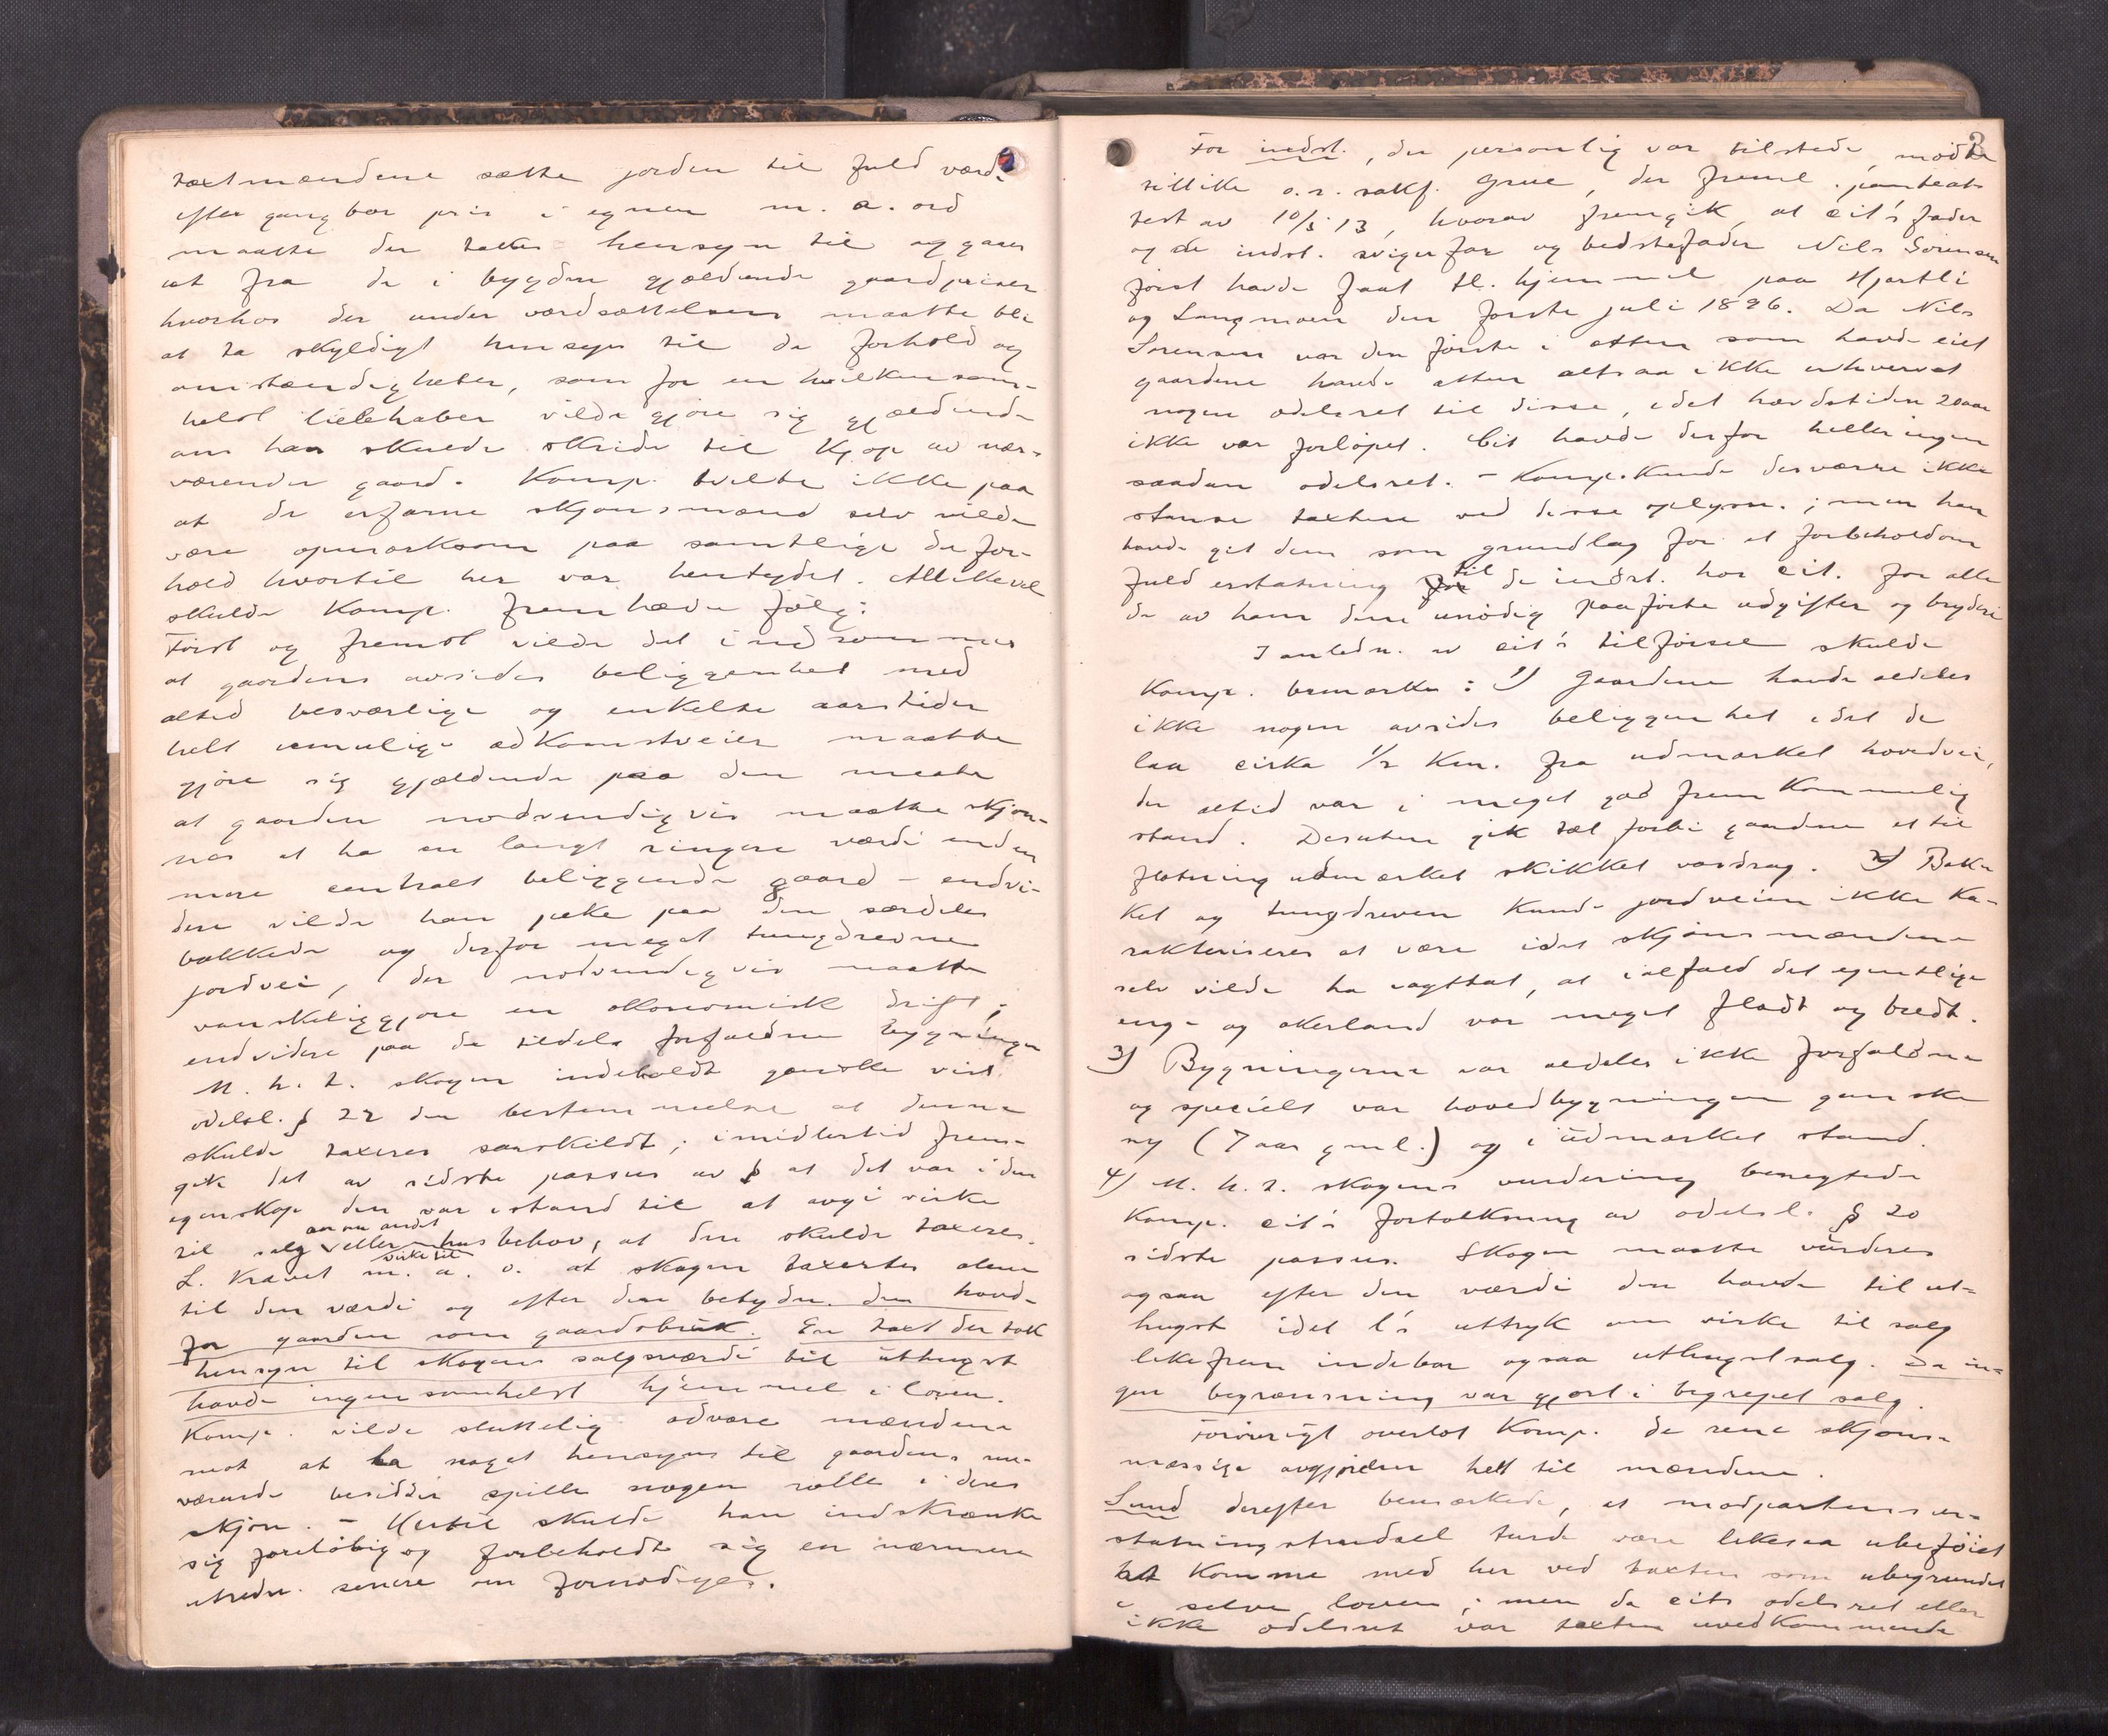 taxtmændene sætte jorden til fuld værdi
efter gangbar pris i egnen m. a. ord
maatte der takes hensyn til og gaaes
ut fra de i bygden gjældende gaardpriser
hvorhos der under værdsættelsen maatte bli
at ta skyldigt hensyn til de forhold og
omstændigheter, som for en hvilkensom-
helst liebhaber vilde gjöre sig gjældende
om han skulde skride til kjøp av nær-
værende gaard. Komp. tvilte ikke paa
at de erfarne skjønsmænd selv vilde
være opmerksom paa samtlige de for-
hold hvortil her var hentydet. Allikevel
skulde komp. fremhæve følg:
Først og fremst vilde det indrømmes
at gaardens avsides beliggenhet med
altid besværlige og enkelte aarstider
helt umulige adkomstveier maatte
gjöre sig gjældende paa den maate
at gaarden nødvendigvis maatte skjøn-
nes at ha en langt ringere værdi end en
mere centralt beliggende gaard – endvi-
dere vilde han peke paa den særdeles
bakkede og derfor meget tungdrevne
jordvei, der nødvendigvis maatte
vanskeliggjøre en økonomisk drift;
endvidere paa de tildels forfaldne bygninger
M. h. t. skogen indeholdt ganske vist
odelsl. § 22 den bestemmelse at denne
skulde taxeres særskildt; imidlertid frem-
gik det av sidste passus av § at det var i den
egenskap den var istand til at avgi virke
til salg eller an nu andet virke til husbehov, at den skulde taxeres.
L. krævet m. a. o. at skogen taxertes alene
til den værdi og efter den betydn. den havde
for gaarden som gaardsbruk. En taxt der tok
hensyn til skogens salgsværdi til uthugst
havde ingensomhelst hjemmel i loven.
Komp. vilde sluttelig advare mændene
mot at la noget hensyn til gaardens nu-
værende besidder spille nogen rolle i deres
skjøn. – Hertil skulde han indskrænke
sig foreløbig og forbeholdt sig en nærmere
utredn. senere om fornødiges.
3
For indst., der personlig var tilstede mødte
tillike o.r. sakf. Grue, der freml. panteat-
test av 10/5 13, hvorav fremgik, at cit's fader
og de indst. svigerfar og bedstefader Nils Sörensen
först havde faat tl. hjemmel paa Hjartli
og Langmoen den første juli 1896. Da Nils
Sörensen var den første i ætten som havde eiet
gaardene havde ætten altsaa ikke erhvervet
nogen odelsret til disse, idet hævdstiden 20 aar
ikke var forløpet. Cit havde derfor heller ingen
saadan odelsret. – Komp. kunde desværre ikke
stanse taxten ved disse oplysn.; men han
havde git dem som grundlag for et forbehold om
fuld erstatning for til de indst. hos cit. for alle
de av ham dem unødig paaførte udgifter og bryderi
I anledn. av cit's tilførsel skulde
Komp. bemærke: 1) Gaardene havde aldeles
ikke nogen avsides beliggenhet idet de
laa cirka 1/2 Km. fra udmærket hovedvei,
der altid var i meget god fremkommelig
stand. Desuten gik tæt forbi gaardene et til
flötning udmærket skikket vasdrag. 2) Bak-
ket og tungdreven kunde jordveien ikke ka-
rakteriseres at være idet skjønsmændene
selv vilde ha iagttat, at ialfald det egentlige
eng- og akerland var meget fladt og bredt.
3) Bygningerne var aldeles ikke forfaldne
og specielt var hovedbygningen ganske
ny (7 aar gml.) og i udmærket stand.
4) M. h. t. skogens vurdering benegtede
Komp. cit's fortolkning av odelsl. § 20
sidste passus. Skogen maatte vurderes
ogsaa efter den værdi den havde til ut-
hugst idet l's uttryk om virke til salg
likefrem indebar ogsaa uthugstsalg. Da in-
gen begrænsning var gjort i begrepet salg.
Forøvrigt overlot Komp. de rene skjøns-
mæssige avgjørelser helt til mændene.
Lund derefter bemærkede, at modpartens er-
statningstrudsel turde være likesaa ubeføiet
at komme med her ved taxten som ubegrundet
i selve loven; men da cits odelsret eller
ikke odelsret var taxten uvedkommende